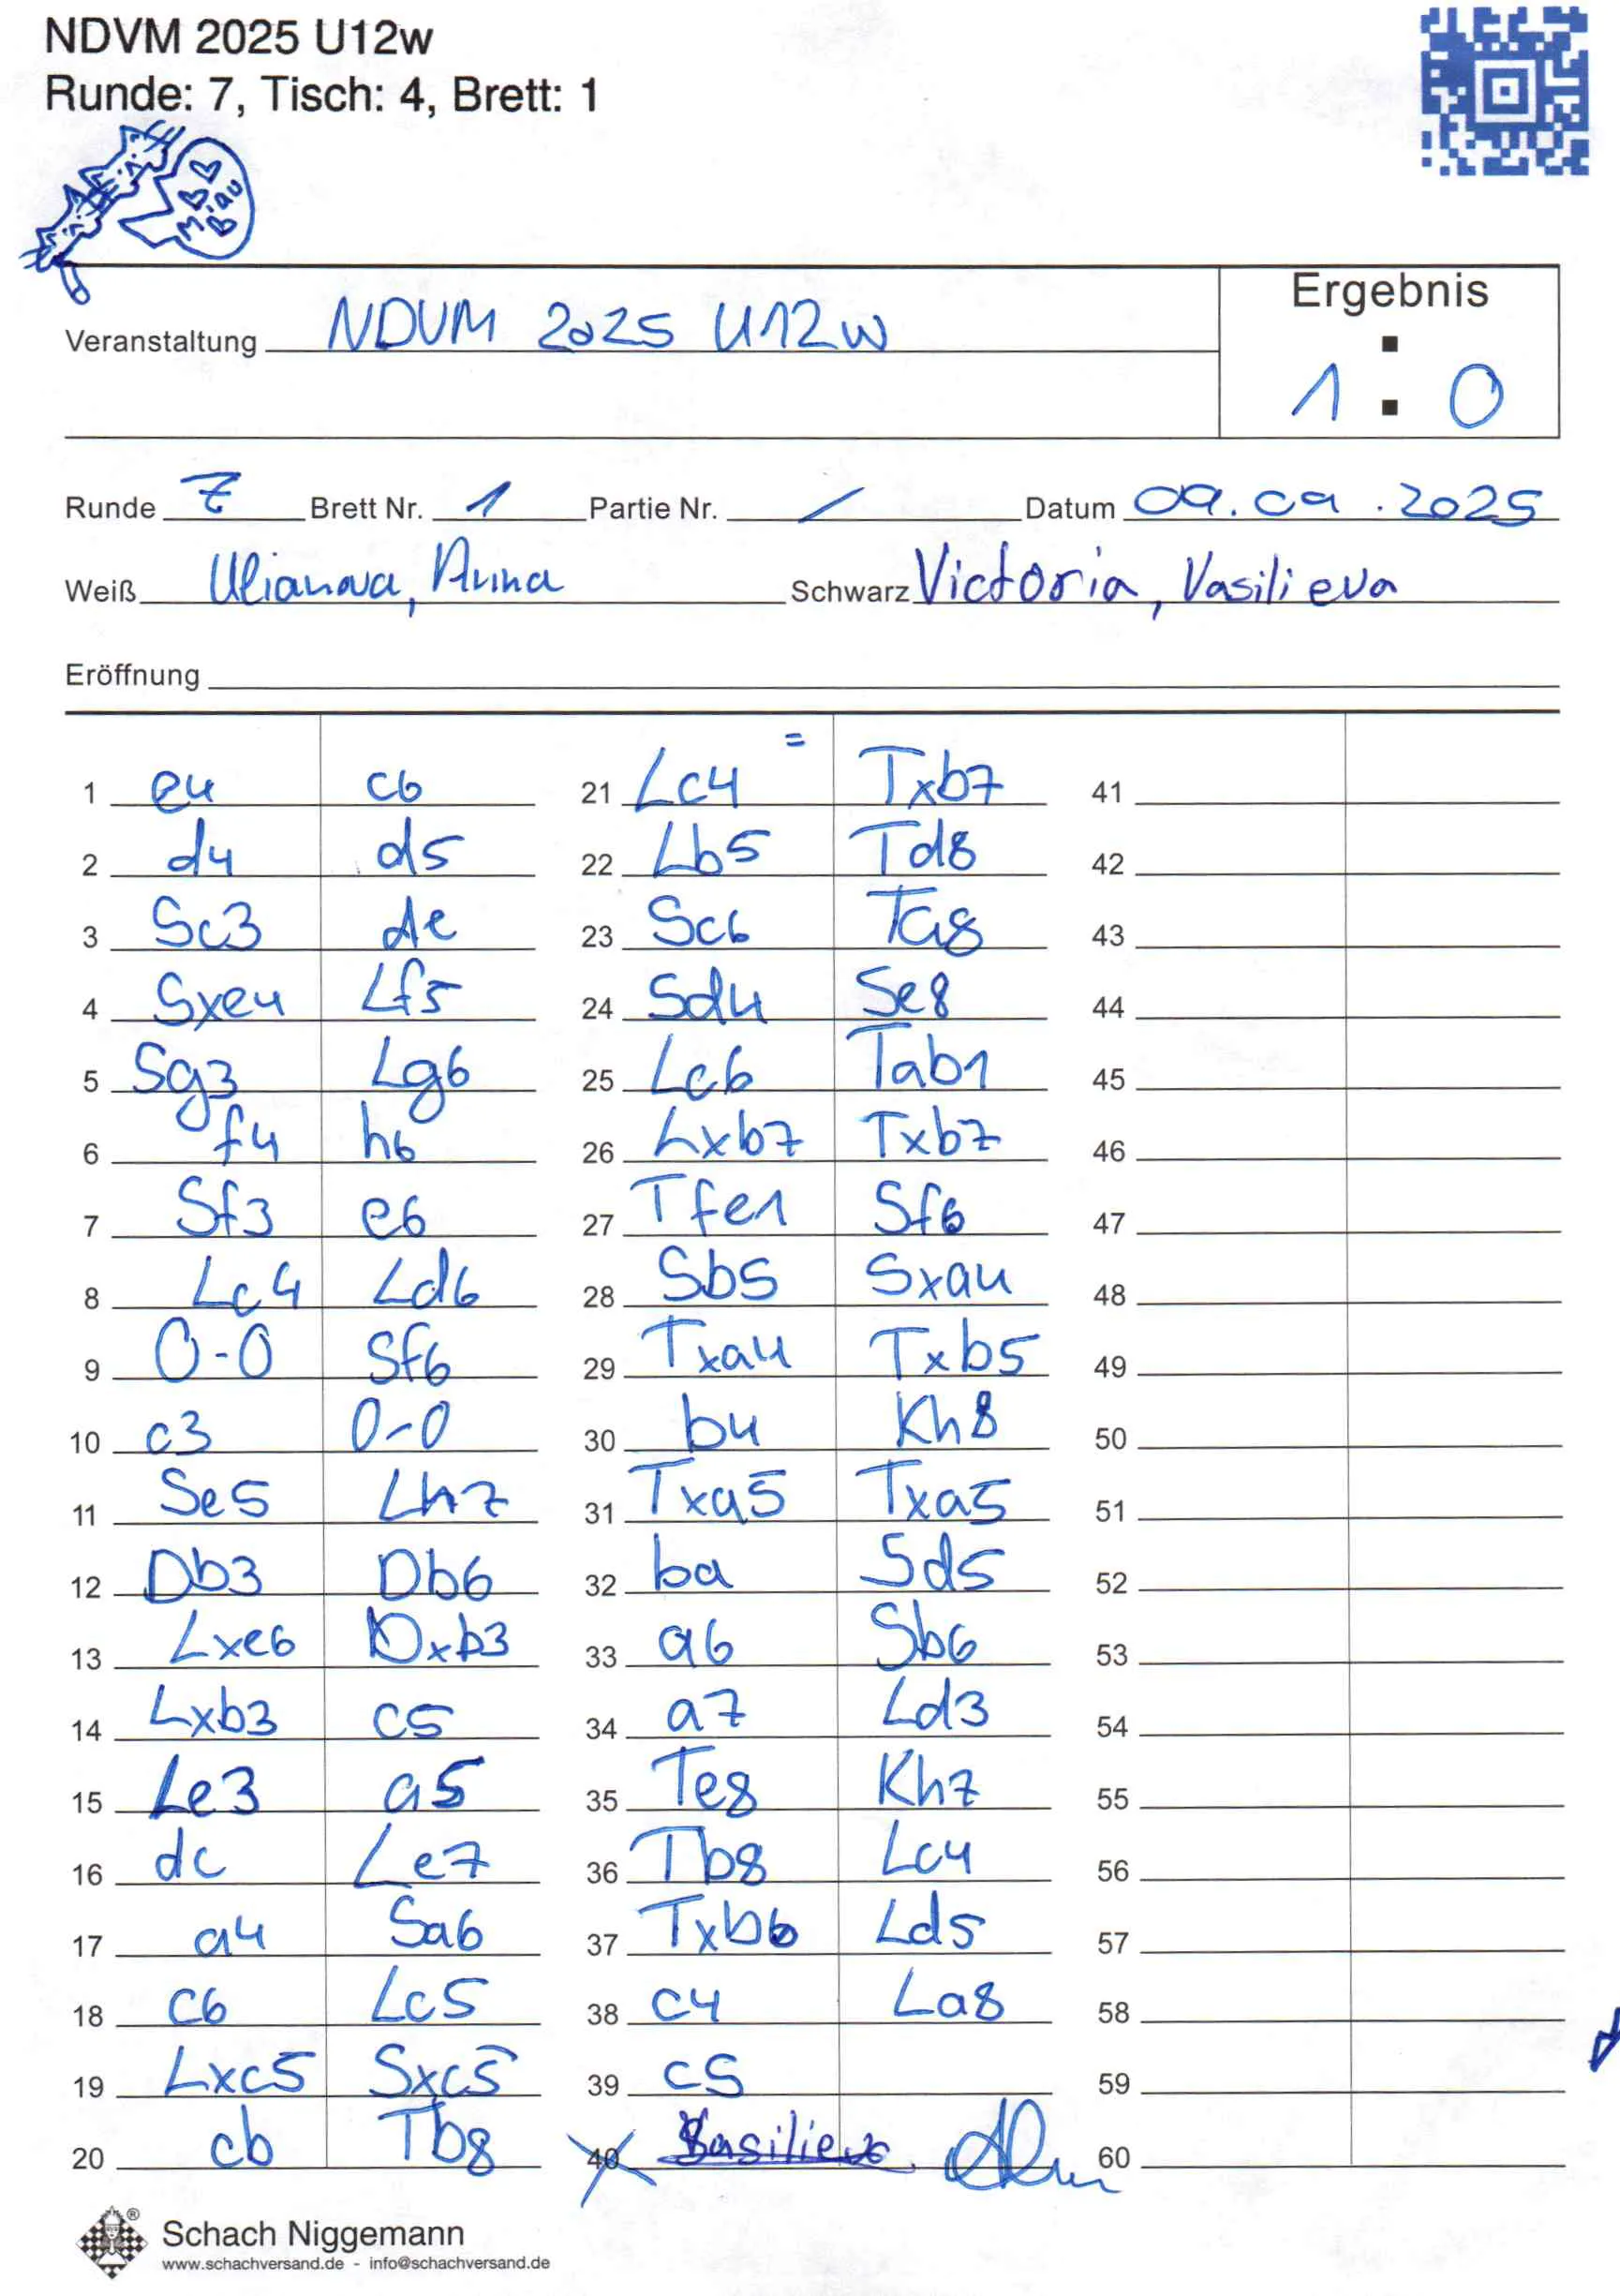 NDVM 2025 U12w
Runde: 7, Tisch: 4, Brett: 1
Miau
Ergebnis
Veranstaltung NDVM 2025 U12w
1 : 0
Runde 7 Brett Nr. 1 Partie Nr. / Datum 09.09.2025
Weiß Ulianova, Anna Schwarz Victoria, Vasilieva
Eröffnung
1 e4 c6 21 Lc4 = Txb7 41
2 d4 d5 22 Lb5 Td8 42
3 Sc3 de 23 Sc6 Ta8 43
4 Sxe4 Lf5 24 Sd4 Se8 44
5 Sg3 Lg6 25 Lc6 Tab1 45
6 f4 h6 26 Lxb7 Txb7 46
7 Sf3 e6 27 Tfe1 Sf6 47
8 Lc4 Ld6 28 Sb5 Sxa4 48
9 0-0 Sf6 29 Txa4 Txb5 49
10 c3 0-0 30 b4 Kh8 50
11 Se5 Lh7 31 Txa5 Txa5 51
12 Db3 Db6 32 ba Sd5 52
13 Lxe6 Dxb3 33 a6 Sb6 53
14 Lxb3 c5 34 a7 Ld3 54
15 Le3 a5 35 Te8 Kh7 55
16 dc Le7 36 Tb8 Lc4 56
17 a4 Sa6 37 Txb6 Ld5 57
18 c6 Lc5 38 c4 La8 58
19 Lxc5 Sxc5 39 c5 59
20 cb Tb8 40 Vasilieva 60
Schach Niggemann
www.schachversand.de - info@schachversand.de